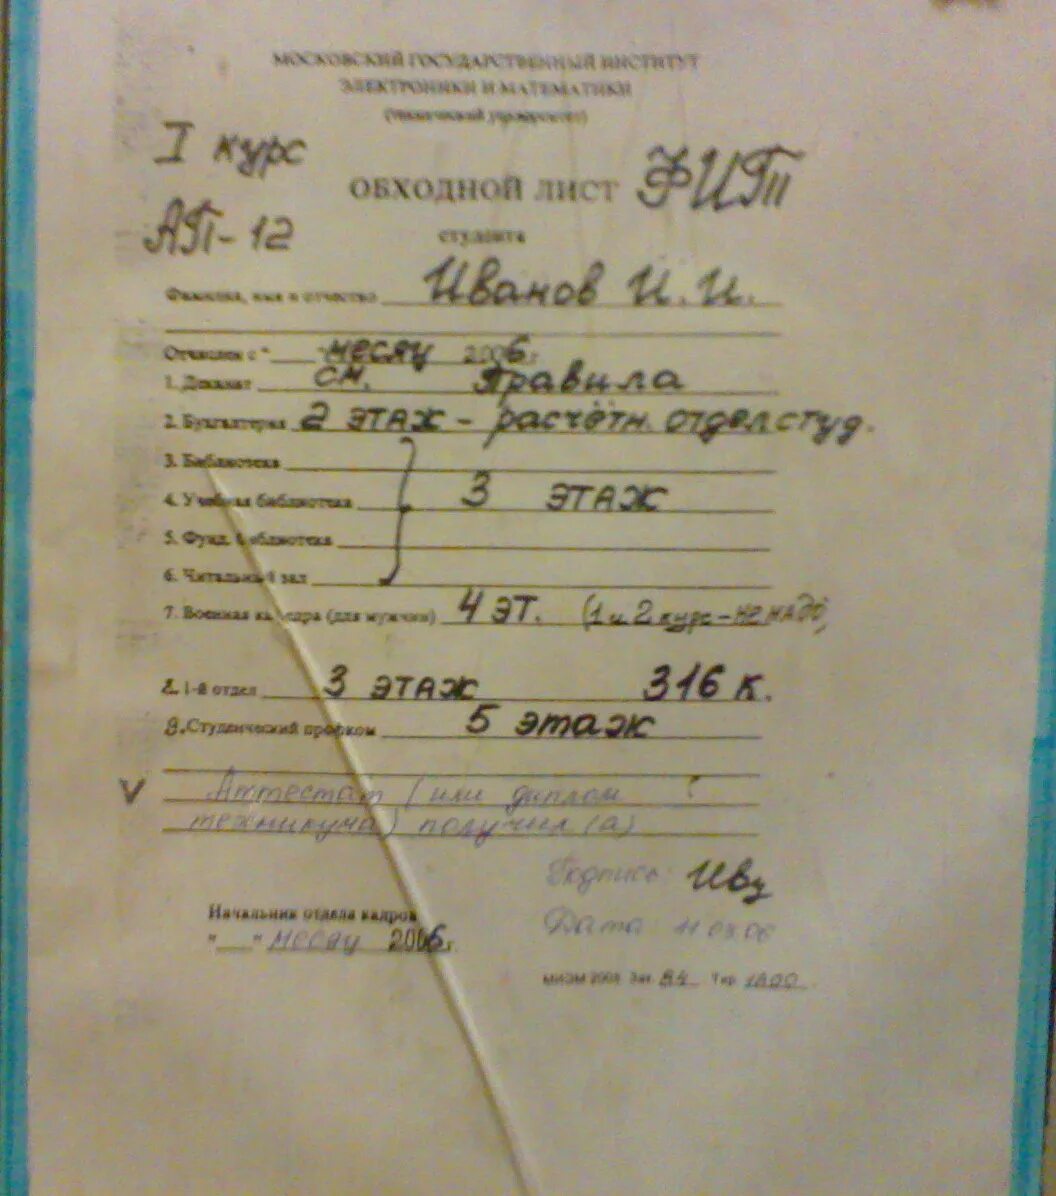 МОСКОВСКИЙ ГОСУДАРСТВЕННЫЙ ИНСТИТУТ
ЭЛЕКТРОНИКИ И МАТЕМАТИКИ
(технический университет)
I курс
ОБХОДНОЙ ЛИСТ ФИТ
АП-12
студента
Фамилия, имя и отчество Иванов И. И.
Отчислен с "___" месяц 2006 г.
1. Деканат см. Правила
2. Бухгалтерия 2 этаж - расчётн. отдел студ.
3. Библиотека
4. Учебная библиотека 3 этаж
5. Фунд. библиотека
6. Читальный зал
7. Военная кафедра (для мужчин) 4 эт. (1 и 2 курс - не надо)
8. 1-й отдел 3 этаж 316 к.
9. Студенческий профком 5 этаж
V Аттестат (или диплом
техникума) получил(а)
Подпись: Ив
Начальник отдела кадров
Дата:
"___" месяц 2006 г.
МИЭМ Зак. 84 Тир. 1800